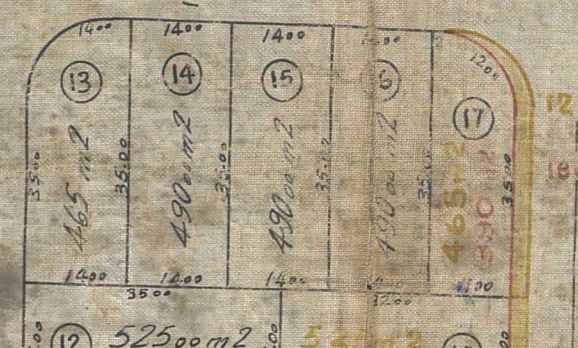 1400 1400 1400 1200
13 14 15 6 17
12
18
3500 465 m2 3500 49000 m2 3500 49000 m2 3500 49000 m2 3500 465 m2 390 m2 3500
1400 1400 1400
3500 3200
12 52500 m2